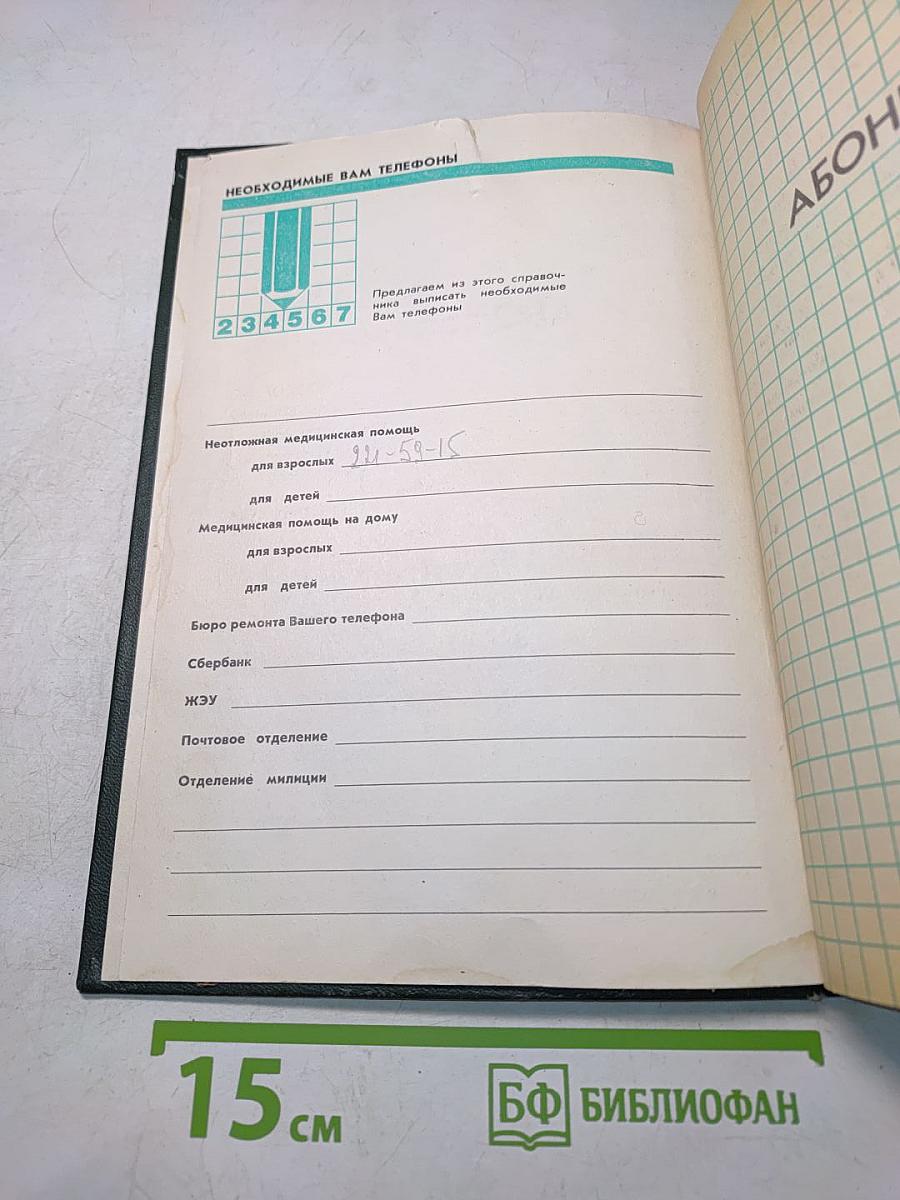 НЕОБХОДИМЫЕ ВАМ ТЕЛЕФОНЫ
234567
Предлагаем из этого справоч-
ника выписать необходимые
Вам телефоны
Неотложная медицинская помощь
для взрослых 221-59-15
для детей
Медицинская помощь на дому
для взрослых
для детей
Бюро ремонта Вашего телефона
Сбербанк
ЖЭУ
Почтовое отделение
Отделение милиции
АБОН
15 см
БФ БИБЛИОФАН